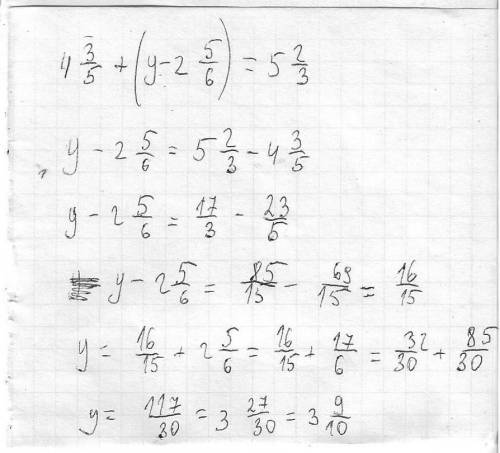 4 3/5 + (y - 2 5/6) = 5 2/3
y - 2 5/6 = 5 2/3 - 4 3/5
y - 2 5/6 = 17/3 - 23/5
y - 2 5/6 = 85/15 - 69/15 = 16/15
y = 16/15 + 2 5/6 = 16/15 + 17/6 = 32/30 + 85/30
y = 117/30 = 3 27/30 = 3 9/10